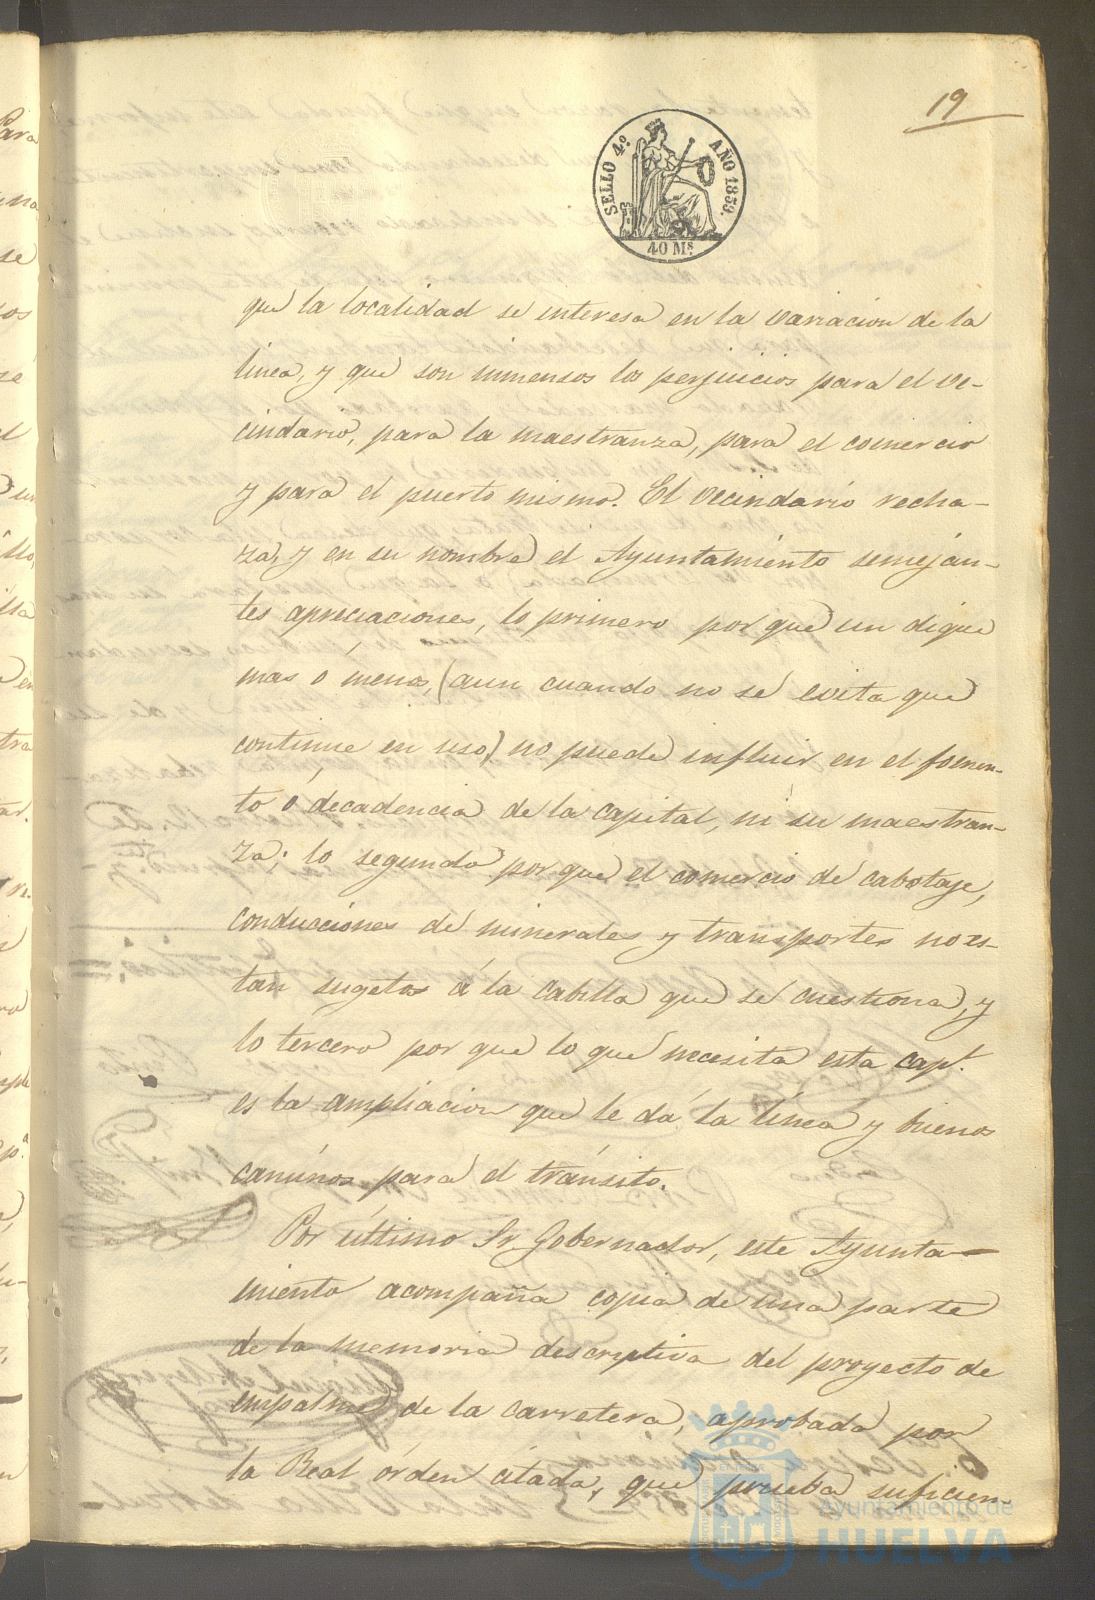 19
SELLO 4.º AÑO 1859.
40 Mˢ
que la localidad se interesa en la variacion de la
linea, y que son inmensos los perjuicios para el ve-
cindario, para la maestranza, para el comercio
y para el puerto mismo. El vecindario recha-
za, y en su nombre el Ayuntamiento semejan-
tes apreciaciones, lo primero por que un dique
mas ó menos, (aun cuando no se evita que
continue en uso) no puede influir en el fomen-
to ó decadencia de la capital, ni su maestran-
za; lo segundo por que el comercio de cabotage,
conducciones de minerales y transportes no es-
tan sugetos á la cabilla que se cuestiona, y
lo tercero por que lo que necesita esta cap.ˡ
es la ampliacion que le dá la línea y buenos
caminos para el tránsito.
Por último Sr Gobernador, este Ayunta-
miento acompaña copia de una parte
de la memoria descriptiva del proyecto de
empalme de la carretera, aprobada por
la Real órden citada, que prueba suficien-
Ayuntamiento de
HUELVA